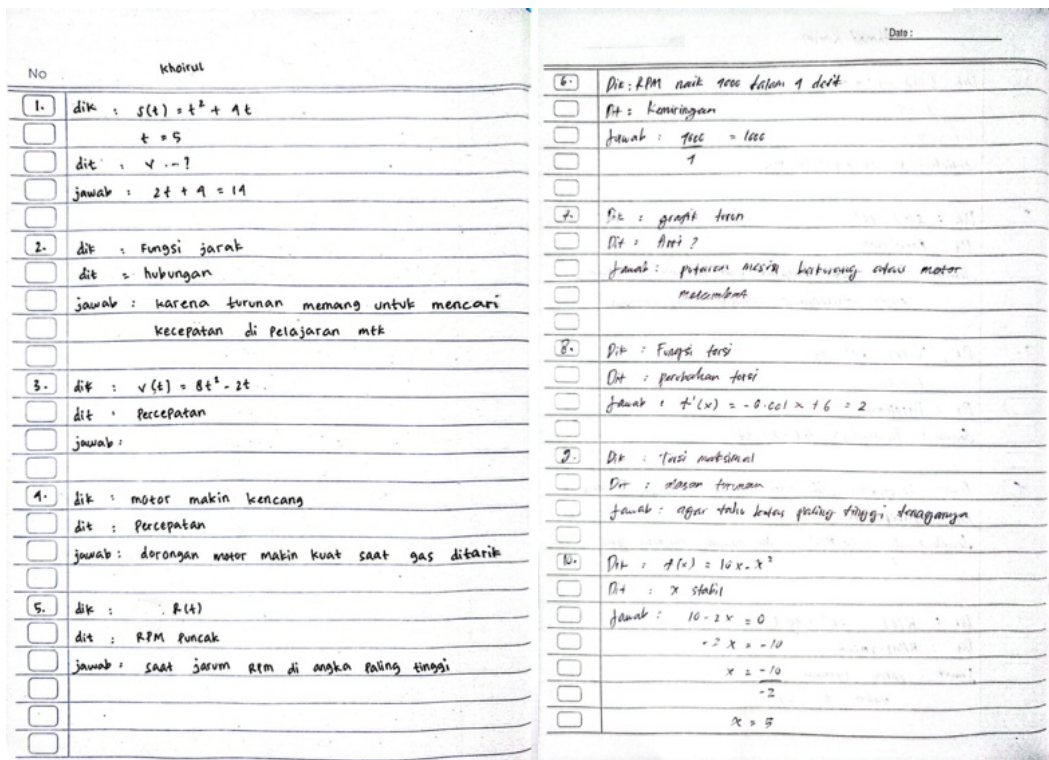 No
Khoirul
1. dik : s(t) = t² + 4t
t = 5
dit : v ...?
jawab : 2t + 4 = 14
2. dik : Fungsi jarak
dit : hubungan
jawab : karena turunan memang untuk mencari
kecepatan di pelajaran mtk
3. dik : v(t) = 8t² - 2t
dit : Percepatan
jawab :
4. dik : motor makin kencang
dit : Percepatan
jawab : dorongan motor makin kuat saat gas ditarik
5. dik : R(t)
dit : RPM Puncak
jawab : saat jarum RPM di angka paling tinggi
Date :
6. Dik : RPM naik 4000 dalam 4 detik
Dit : Kemiringan
Jawab : 4000 = 1000
4
7. Dik : grafik turun
Dit : Arti ?
Jawab : putaran mesin berkurang atau motor
melambat
8. Dik : Fungsi torsi
Dit : perubahan torsi
Jawab : t'(x) = -0.001 x + 6 = 2
9. Dik : Torsi maksimal
Dit : alasan turunan
Jawab : agar tahu batas paling tinggi tenaganya
10. Dik : f(x) = 10x - x²
Dit : x stabil
Jawab : 10 - 2x = 0
-2x = -10
x = -10
-2
x = 5